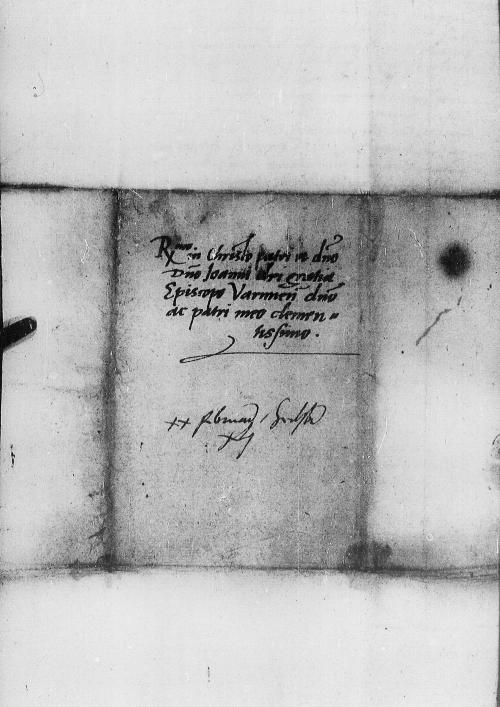 R.mo in Christo patri et dño
Dño Ioanni Dei gratia
Episcopo Varmieñ dño
ac patri meo clemen=
tissimo.
xx februarij